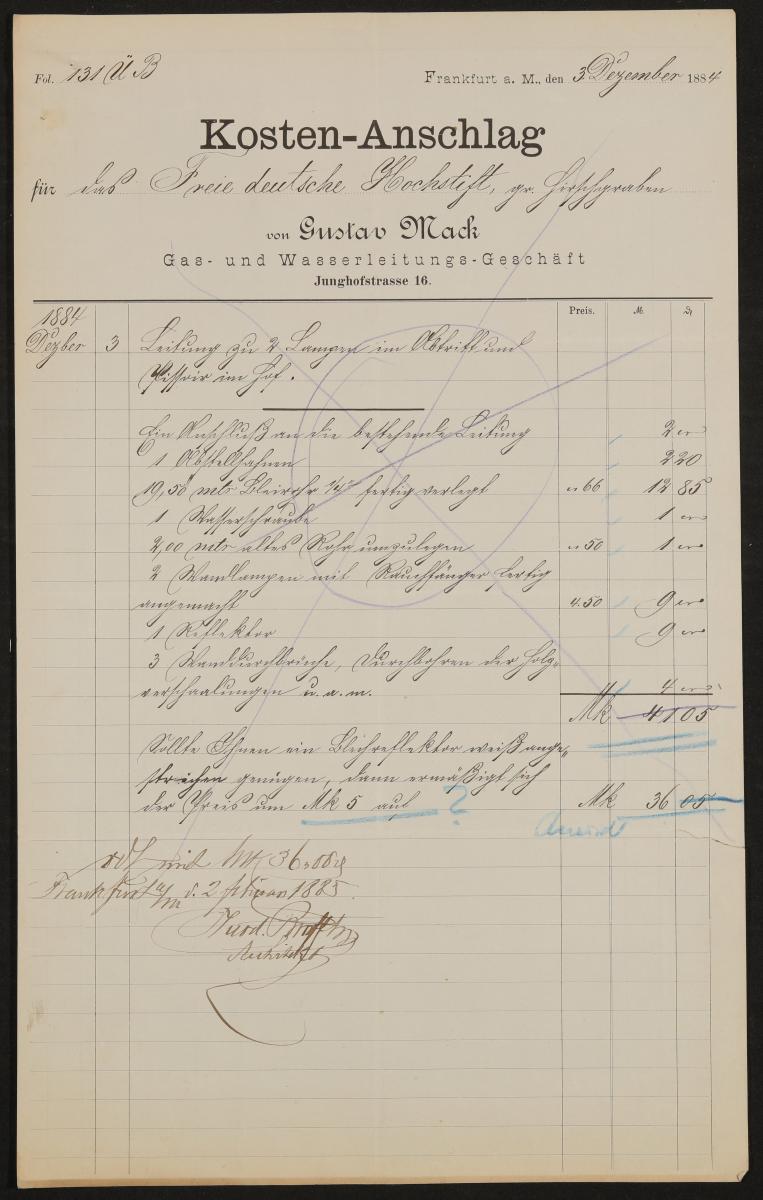 Fol. 131 ÜB
Frankfurt a. M., den 3 Dezember 1884
Kosten-Anschlag
für das Freie deutsche Hochstift, gr. Hirschgraben
von Gustav Mack
Gas- und Wasserleitungs-Geschäft
Junghofstrasse 16.
Preis. M. ₰
1884
Dezber 3 Leitung zu 2 Lampen im Abtritt und
Pissoir im Hof.
Ein Anschluß an die bestehende Leitung 2
1 Abstellhahnen 2 20
19,50 mtr Bleirohr fertig verlegt 66 12 85
1 Wasserschraube 1
2,00 mtr altes Rohr umzulegen 50 1
2 Wandlampen mit Rauchfänger fertig
angemacht 4.50 9
1 Reflektor 9
3 Wanddurchbrüche, Durchbohren der Holz-
verschaalungen u. a. m. 4
Mk 41 05
Sollte Ihnen ein Blechreflektor weiß ange-
strichen genügen, dann ermäßigt sich
der Preis um Mk 5 auf ? Mk 36 05
mit Mk 36
Frankfurt a/M d. 2 Februar 1885.
Architekt